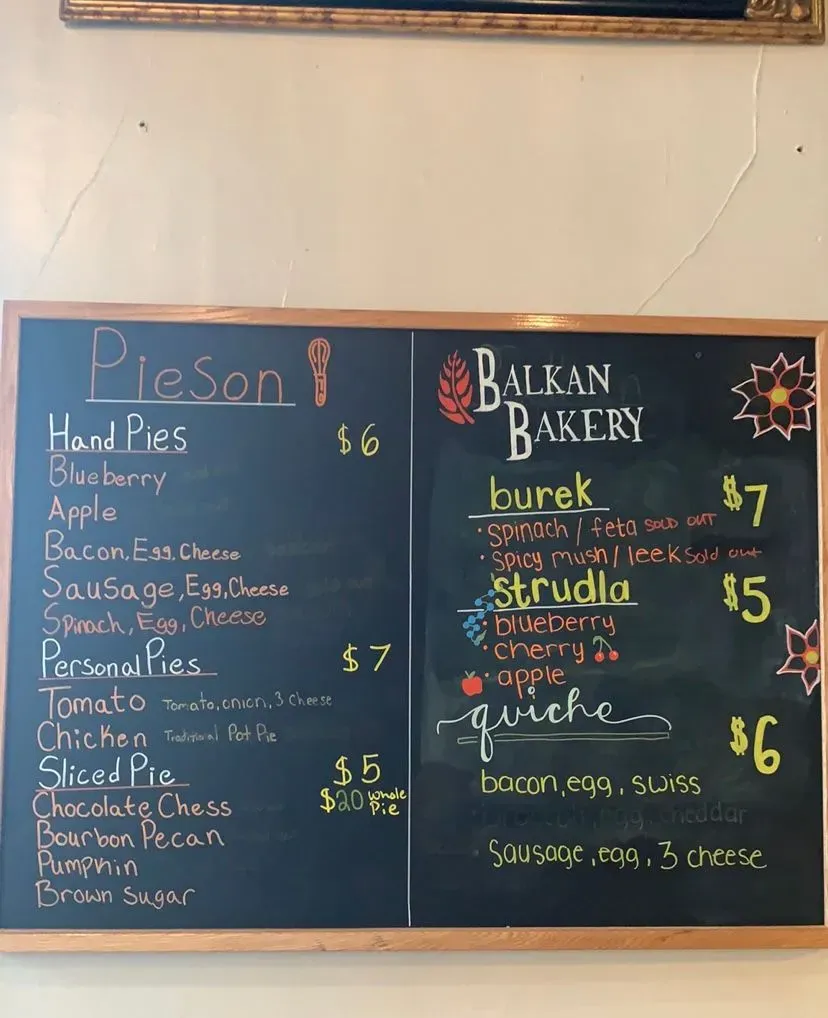 PieSon
Hand Pies $6
Blueberry
Apple
Bacon, Egg, Cheese
Sausage, Egg, Cheese
Spinach, Egg, Cheese
Personal Pies $7
Tomato Tomato, onion, 3 Cheese
Chicken Traditional Pot Pie
Sliced Pie $5
$20 whole Pie
Chocolate Chess
Bourbon Pecan
Pumpkin
Brown Sugar
BALKAN
BAKERY
burek $7
· spinach / feta SOLD OUT
· spicy mush / leek Sold out
strudla $5
· blueberry
· cherry
· apple
quiche $6
bacon, egg, swiss
egg, cheddar
· Sausage, egg, 3 cheese